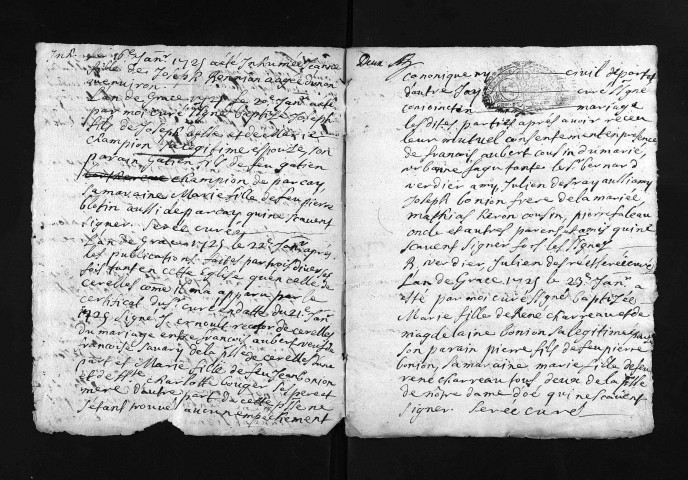 Le 16e Janr 1725 a été Inhumée
fille de Joseph Renoján agée d'un an
ou environ
Lan de Grace 1725 le 20e Janr a été
par moi curé signé baptisé Joseph
fils de Joseph et de Marie
champion sa legitime espouze son
parain gatien fils de feu gatien
champion de parcay
sa maraine Marie fille de feu pierre
blotin aussi de parcay qui ne scavent
signer. Seree curé
Lan de Grace 1725 le 22e Janr aprés
les publications faites par trois diverses
fois tant en cette Eglise qu'en celle de
cerelles come il m'a apparu par le
certificat du Sr curé en datte du 21e Janr
1725 signé recteur de cerelles
du mariage entre francois aubert veuf de
francoise Savary de la psse de cerelles d'une
part et Marie fille de feu Jean bonion
et de charlotte bouger ses pere et
mere d'autre part de cette psse ne
s'etant trouvé aucun empechement
Deux
canonique ny civil de part
d'autre Jay curé signé
conjoinct en mariage
les dites parties apres avoir receu
leur mutuel consentement en presence
de francois aubert cousin du marié,
urbanne sa tante le Sr bernard
verdier amy, Julien desray aussi amy
Joseph bonion frere de la mariée
mathias heron cousin, pierre faleau
oncle et autres parens et amis qui ne
scavent signer fors les signés
R verdier, Julien desre Seree curé
Lan de Grace 1725 le 23e Janr a
esté par moi curé signé baptizée
Marie fille de René charreau et de
magdelaine bonion sa legitime
son parain pierre fils de feu pierre
bonion, sa maraine marie fille de feu
rené charreau tous deux de la psse
de notre dame d'oé qui ne scavent
signer. Seree curé